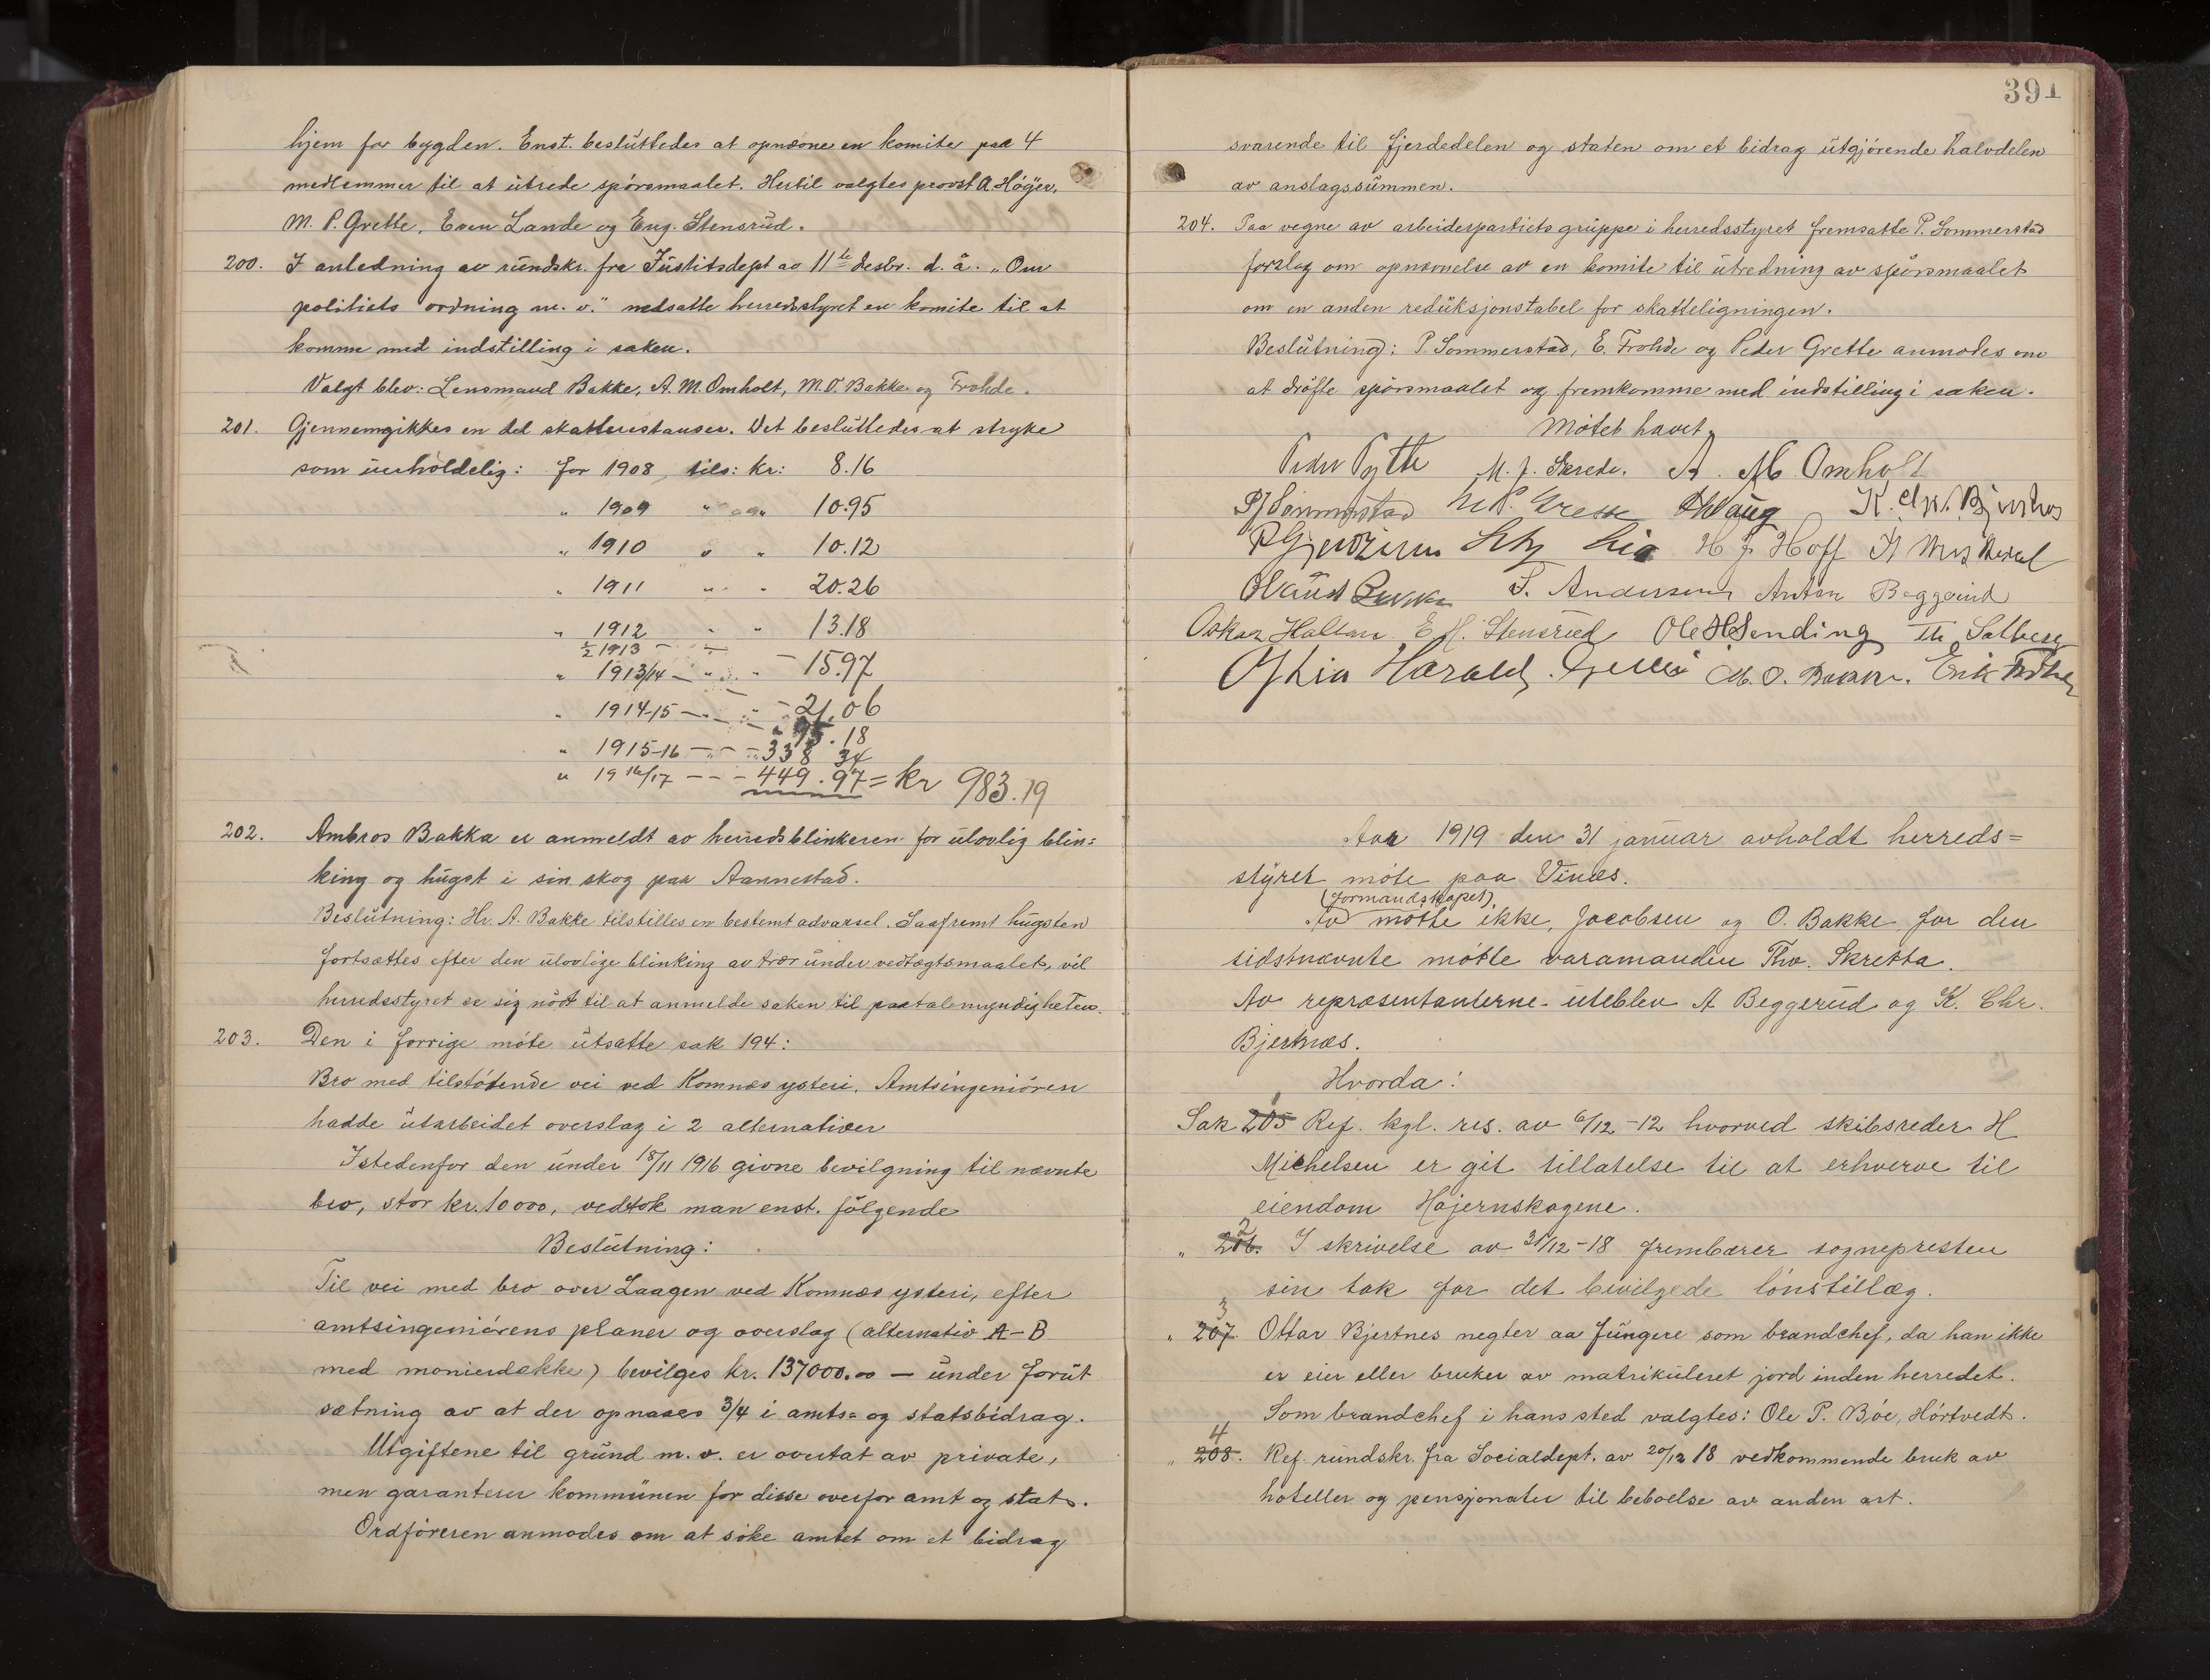 hjem for bygden. Enst. besluttedes at opnævne en komite paa 4
medlemmer til at utrede spörsmaalet. Hertil valgtes provst A. Höyer,
M. P. Grette, Even Lande og Eng. Stensrud.
200. I anledning av rundskr. fra Justitsdept av 11te desbr. d. å. „Om
politiets ordning m. v." nedsatte herredsstyret en komite til at
komme med indstilling i saken.
Valgt blev: Lensmand Bakke, A. M. Omholt, M. O. Bakke og Frohde.
201. Gjennemgikkes en del skatterestanser. Det besluttedes at stryke
som uerholdelig: for 1908, tils: kr: 8.16
„ 1909 „ „ 10.95
„ 1910 „ „ 10.12
„ 1911 „ „ 20.26
„ 1912 „ „ 13.18
½ 1913 — „
„ 1913/14 — „ „ — 15.97
„ 1914-15 — „ „ — 21.06
95.18
„ 1915-16 — — „ 338 34
„ 1916/17 — — — 449.97 = kr 983.19
202. Ambros Bakka er anmeldt av herredsblinkeren for ulovlig blin=
king og hugst i sin skog paa Aannestad.
Beslutning: Hr. A. Bakke tilstilles en bestemt advarsel. Saafremt hugsten
fortsættes efter den ulovlige blinking av trær under vedtægtsmaalet, vil
herredsstyret se sig nödt til at anmelde saken til paatalemyndigheten.
203. Den i forrige möte utsatte sak 194:
Bro med tilstötende vei ved Komnæs ysteri. Amtsingeniören
hadde utarbeidet overslag i 2 alternativer
Istedenfor den under 18/11 1916 givne bevilgning til nævnte
bro, stor kr. 10000, vedtok man enst. fölgende
Beslutning:
Til vei med bro over Laagen ved Komnæs ysteri, efter
amtsingeniörens planer og overslag (alternativ A – B
med monierdække) bevilges kr. 137000.00 — under forut
sætning av at der opnaaes 3/4 i amts= og statsbidrag.
Utgiftene til grund m. v. er overtat av private,
men garanterer kommunen for disse overfor amt og stat.
Ordföreren anmodes om at söke amtet om et bidrag
391
svarende til fjerdedelen og staten om et bidrag utgjörende halvdelen
av anslagssummen.
204. Paa vegne av arbeiderpartiets gruppe i herredsstyret fremsatte P. Sommerstad
forslag om opnævnelse av en komite til utredning av spörsmaalet
om en anden reduksjonstabel for skatteligningen.
Beslutning: P. Sommerstad, E. Frohde og Peder Grette anmodes om
at dröfte spörsmaalet og fremkomme med indstilling i saken.
Mötet hævet.
M. J. Skrede. A. M. Omholt
P. Sommerstad M. P. Grette K. Chr. Bjertnæs
Lia H J Hoff
S. Andersen Anton Beggerud
Oskar Haltan E H. Stensrud Ole H Sending Th. Solberg
O Lia Harald M. O. Bakke. Erik Frohde
Aar 1919 den 31 januar avholdt herreds=
styret möte paa Vinæs.
(formandskapet)
Av mötte ikke, Jacobsen og O. Bakke for den
sidstnævnte mötte varamanden Thv. Skretta.
Av repræsentanterne uteblev A Beggerud og K. Chr.
Bjertnæs.
Hvorda:
1
Sak 205 Ref. kgl. res. av 6/12 -12 hvorved skibsreder H
Michelsen er git tillatelse til at erhverve til
eiendom Hajernskogene.
2
„ 206. I skrivelse av 31/12-18 frembærer sognepresten
sin tak for det bevilgede lönstillæg.
3
„ 207. Ottar Bjertnes negter aa fungere som brandchef, da han ikke
er eier eller bruker av matrikuleret jord inden herredet.
Som brandchef i hans sted valgtes: Ole P. Böe, Hörtvedt.
4
„ 208. Ref. rundskr. fra Socialdept. av 20/12 18 vedkommende bruk av
hoteller og pensjonater til beboelse av anden art.